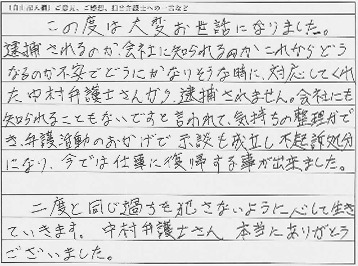 【自由記入欄】ご意見、ご感想、担当弁護士への一言など
この度は大変お世話になりました。
逮捕されるのか会社に知られるのかこれからどう
なるのか不安でどうにかなりそうな時に、対応してくれ
た中村弁護士さんから、逮捕されません。会社にも
知られることもないですと言われて、気持ちの整理がで
き、弁護活動のおかげで示談も成立し不起訴処分
になり、今では仕事に復帰する事が出来ました。
二度と同じ過ちを犯さないように心して生き
ていきます。中村弁護士さん 本当にありがとう
ございました。